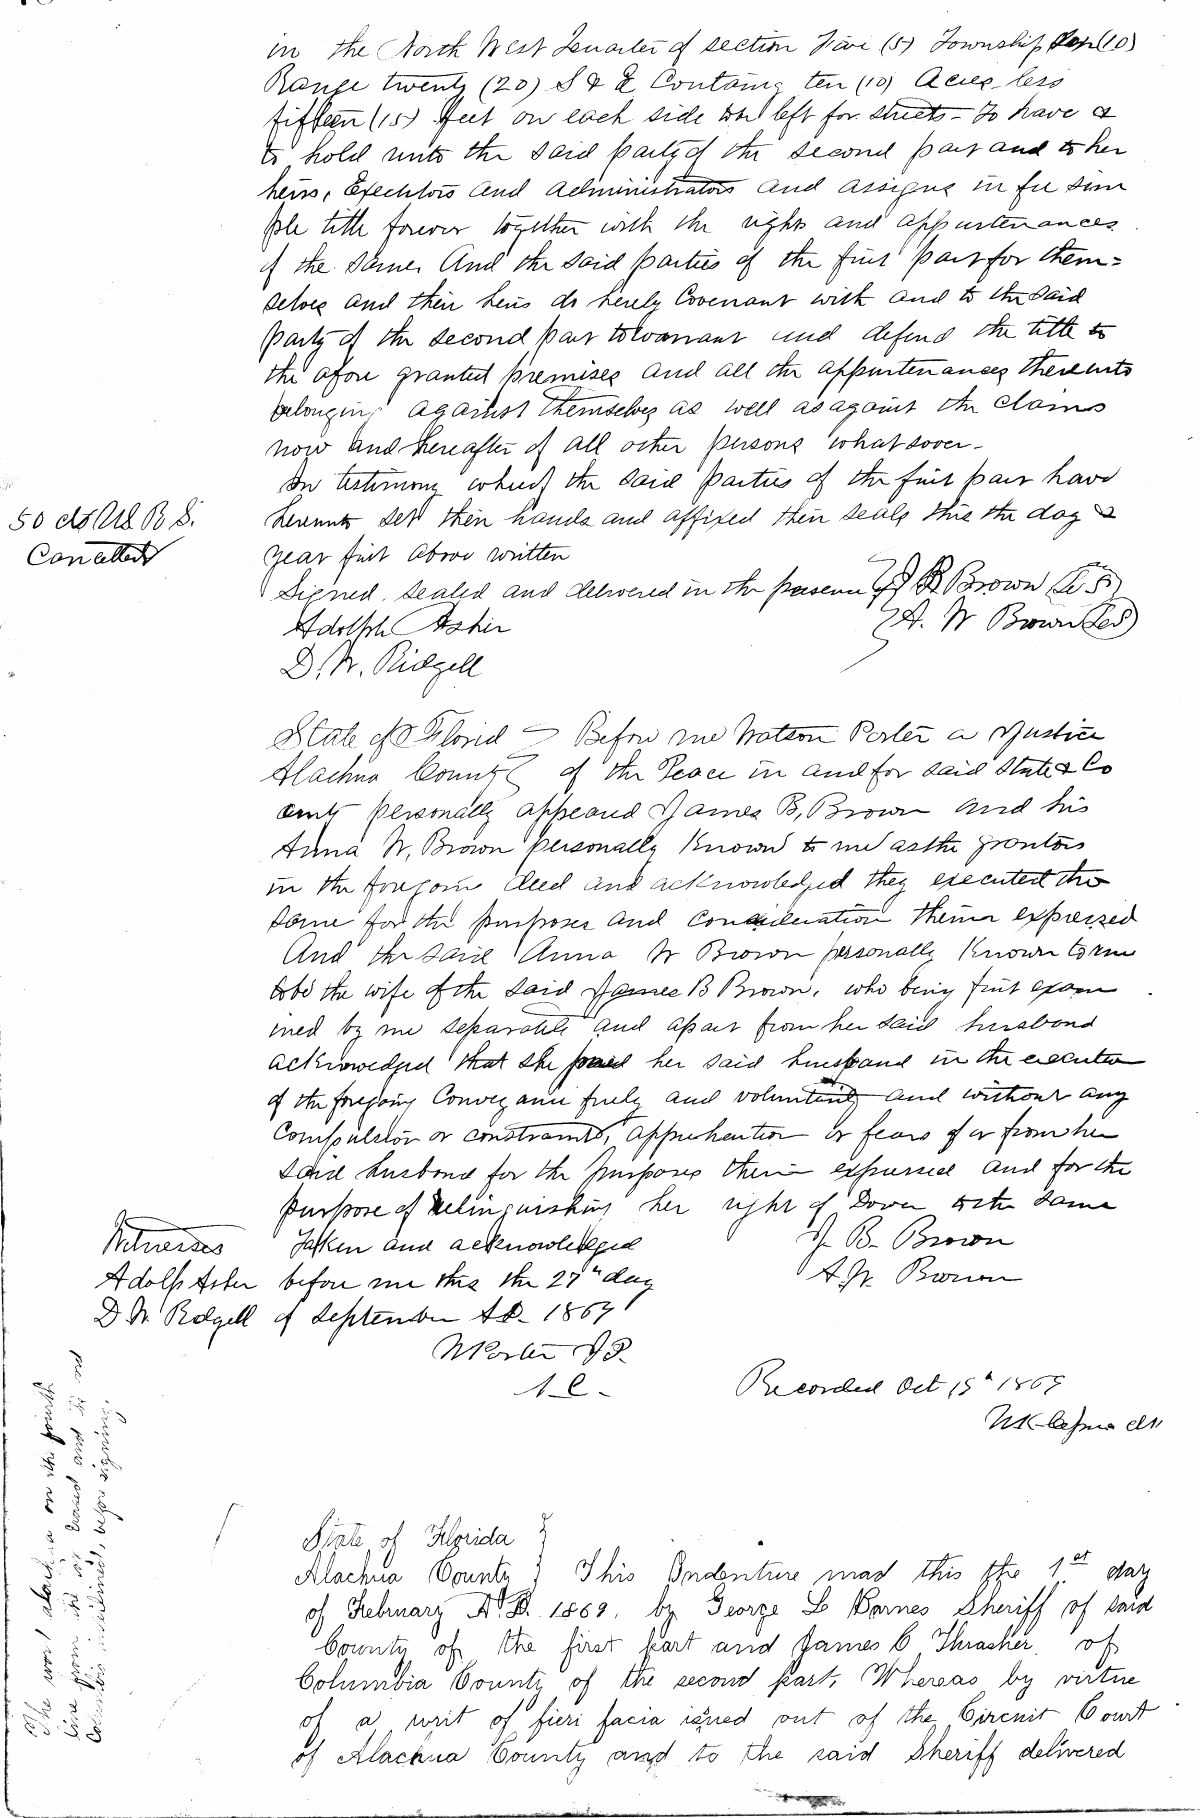 in the North West Quarter of section Five (5) Township Ten (10)
Range twenty (20) S & E Containg ten (10) Acres less
fifteen (15) feet on each side to be left for streets - To have &
to hold unto the said party of the second part and to her
heirs, Executors and administrators and assigns in fee sim
ple title forever together with the rights and appurtenances
of the same. And the said parties of the first part for them=
selves and their heirs do hereby Covenant with and to the said
party of the second part to warrant and defend the title to
the afore granted premises and all the appurtenances thereunto
belonging against themselves as well as against the claims
now and hereafter of all other persons whatsover -
In testimony whereof the said parties of the first part have
hereunto set their hands and affixed their seals this the day &
year first above written
50 cts U S R S.
Cancelled
Signed, sealed and delivered in the presence of J B Brown (L S)
Adolph Asher A. W Brown (L S)
D. W. Ridgell
State of Florid } Before me Watson Porter a Justice
Alachua County } of the Peace in and for said State & Co
unty personally appeared James B, Brown and his
Anna W, Brown personally Known to me as the grantors
in the foregoin deed and acknowledged they executed the
same for the purposes and consideration therein expressed
And the said Anna W Brown personally Known to me
to be the wife of the said James B Brown, who being first exam
ined by me separately and apart from her said husband
acknowedged that she joined her said husband in the execution
of the foregoing Conveyance freely and voluntarily and without any
Compulsion or constraint, apprehention or fears of or from her
said husband for the purposes therein expressed and for the
purpose of relinquishing her right of Dower to the same
Witnesses Taken and acknowledged J. B. Brown
Adolph Asher before me this the 27th day A. W. Brown
D. W. Ridgell of September A D. 1869
W Porter J P.
A C -
Recorded Oct 15th 1869
The word Alachua on the fourth
line from
interlined, before signing.
State of Florida }
Alachua County } This Indenture mad this the 1st day
of February A. D. 1869. by George L Barnes Sheriff of said
County of the first part and James C Thrasher of
Columbia County of the second part, Whereas by virtue
of a writ of fieri facia issued out of the Circuit Court
of Alachua County and to the said Sheriff delivered